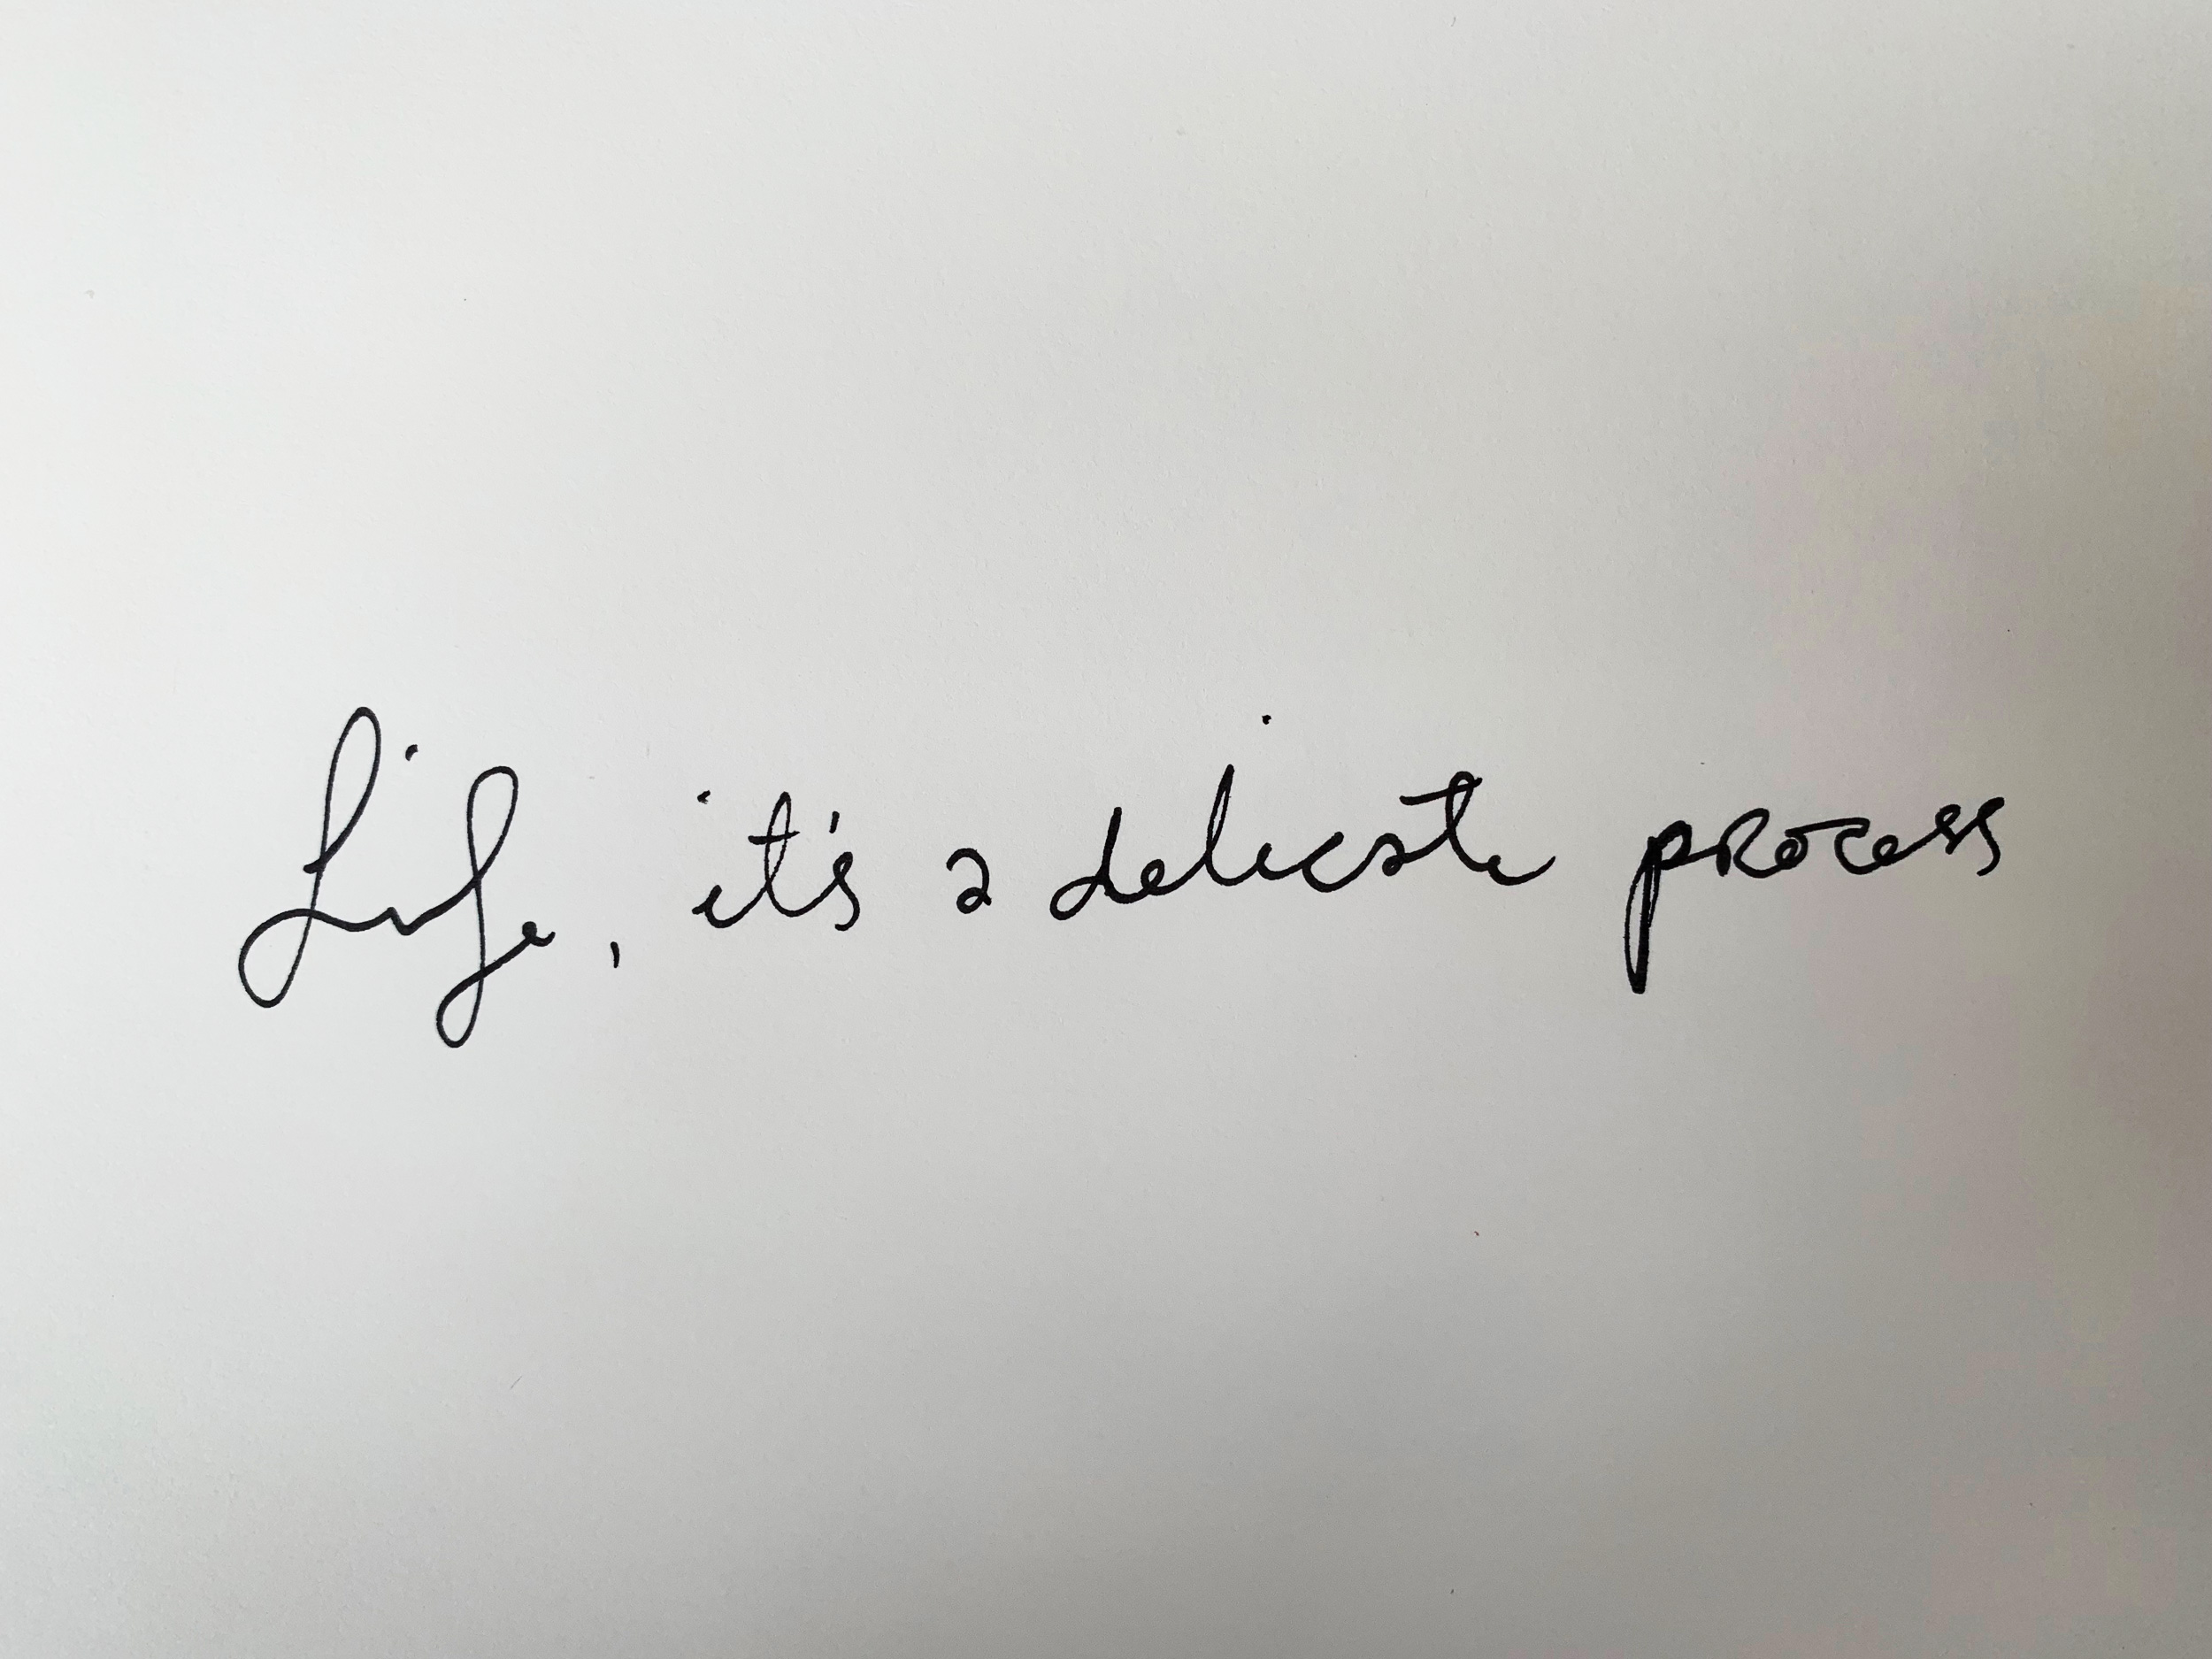 Life, it's a delicate process